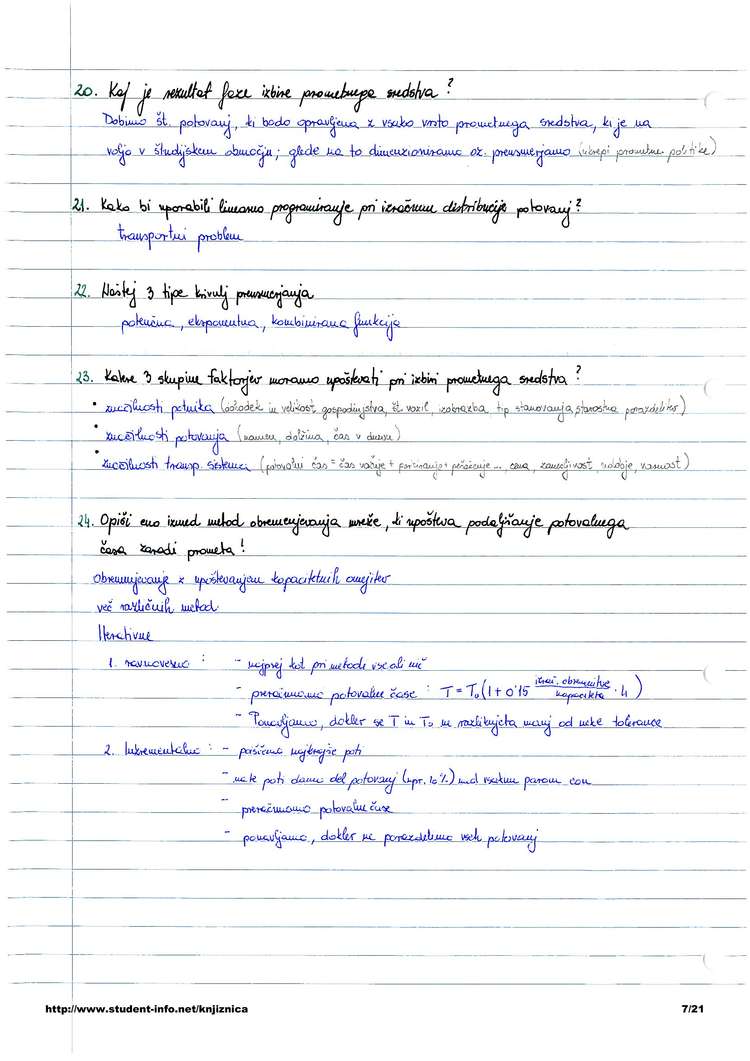 20. Kaj je rezultat faze izbire prometnega sredstva?
Dobimo št. potovanj, ki bodo opravljena z vsako vrsto prometnega sredstva, ki je na
voljo v študijskem območju; glede na to dimenzioniramo oz. preusmerjamo (ukrepi prometne politike)
21. Kako bi uporabili linearno programiranje pri izračunu distribucije potovanj?
transportni problem
22. Naštej 3 tipe krivulj preusmerjanja
potenčna, eksponentna, kombinirana funkcija
23. Katere 3 skupine faktorjev moramo upoštevati pri izbiri prometnega sredstva?
• značilnosti potnika (dohodek in velikost gospodinjstva, št. vozil, izobrazba, tip stanovanja, starostna porazdelitev)
• značilnosti potovanja (namen, dolžina, čas v dnevu)
• značilnosti transp. sistema (potovalni čas = čas vožnje + parkiranje + pešačenje ..., cena, zanesljivost, udobje, varnost)
24. Opiši eno izmed metod obremenjevanja mreže, ki upošteva podaljšanje potovalnega
časa zaradi prometa!
Obremenjevanje z upoštevanjem kapacitetnih omejitev
več različnih metod
Iterativne
1. ravnovesno : - najprej kot pri metodi vse ali nič
- preračunamo potovalne čase : T = T₀ (1 + 0'15 izrač. obremenitve / kapaciteta · 4)
- Ponavljamo, dokler se T in T₀ ne razlikujeta manj od neke tolerance
2. Inkrementalno : - poiščemo najkrajše poti
- na te poti damo del potovanj (npr. 10 %) med vsakim parom con
- preračunamo potovalne čase
- ponavljamo, dokler ne porazdelimo vseh potovanj
http://www.student-info.net/knjiznica 7/21